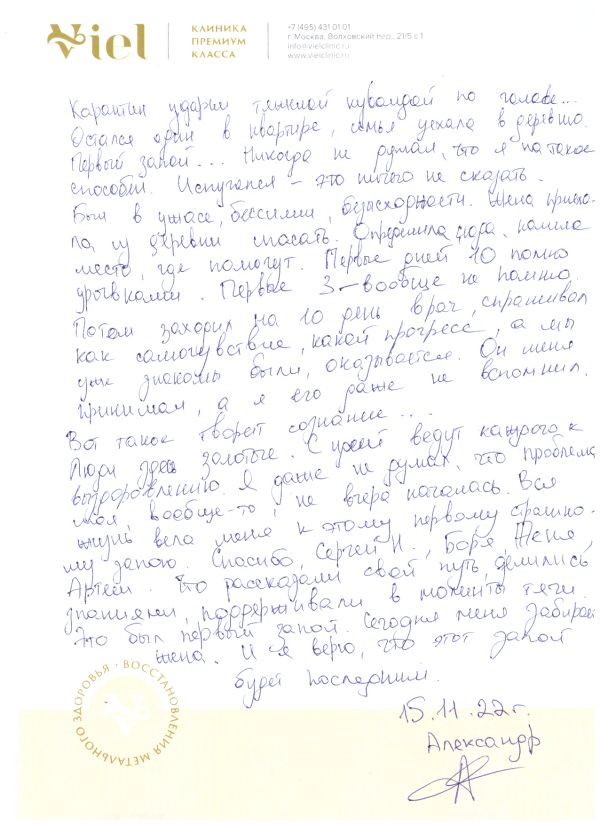 Viel
КЛИНИКА
ПРЕМИУМ
КЛАССА
+7 (495) 431 01 01
г. Москва, Волховский пер., 21/5 с 1
info@vielclinic.ru
www.vielclinic.ru
Карантин ударил тяжкой кувалдой по голове...
Остался один в квартире, семья уехала в деревню.
Первый запой... Никогда не думал, что я на такое
способен. Испугался – это ничего не сказать.
Был в ужасе, бессилии, безысходности. Жена приеха-
ла из деревни спасать. Определила сюда, нашла
место, где помогут. Первые дней 10 помню
урывками. Первые 3 – вообще не помню.
Потом заходил на 10 день врач, спрашивал
как самочувствие, какой прогресс, а мы
уже знакомы были, оказывается. Он меня
принимал, а я его даже не вспомнил.
Вот такое творит сознание....
Люди здесь золотые. С душой ведут каждого к
выздоровлению. Я даже не думал, что проблема
моя, вообще-то, не вчера началась. Вся
жизнь вела меня к этому первому страшно-
му запою. Спасибо, Сергей Н., Боря, Женя,
Артем. Что рассказали свой путь, делились
знаниями, поддерживали в моменты тяги.
Это был первый запой. Сегодня меня забирает
жена. И я верю, что этот запой
будет последним.
15.11.22г.
Александр
ВОССТАНОВЛЕНИЯ МЕТАЛЬНОГО ЗДОРОВЬЯ
Viel